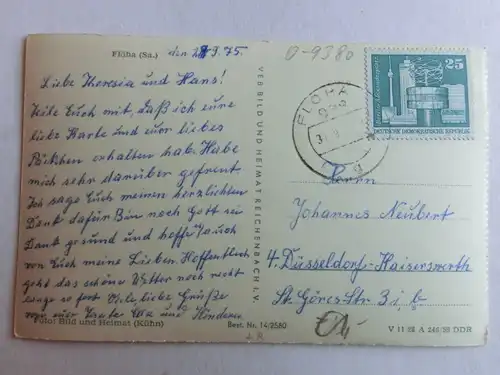 Flöha (Sa.) den 29.9.75.
Liebe Theresia und Hans!
Teile Euch mit, daß ich eure
liebe Karte und euer liebes
Päckchen erhalten hab. Habe
mich sehr darüber gefreut.
Ich sage Euch meinen herzlichsten
Dank dafür Bin noch Gott sei
Dank gesund und hoffe es auch
von Euch meine Lieben. Hoffentlich
geht das schöne Wetter noch recht
lange so fort Viele, liebe Grüße
von eurer Tante und Kindern
Foto: Bild und Heimat (Kühn)
Best. Nr. 14/2580
VEB BILD UND HEIMAT REICHENBACH I. V.
0-9380
25
DEUTSCHE DEMOKRATISCHE REPUBLIK
FLÖHA
Herrn
Johannes Neubert
4. Düsseldorf-Kaiserswerth
St. Göres Str. 3 i, b
V 11 28 A 246/69 DDR